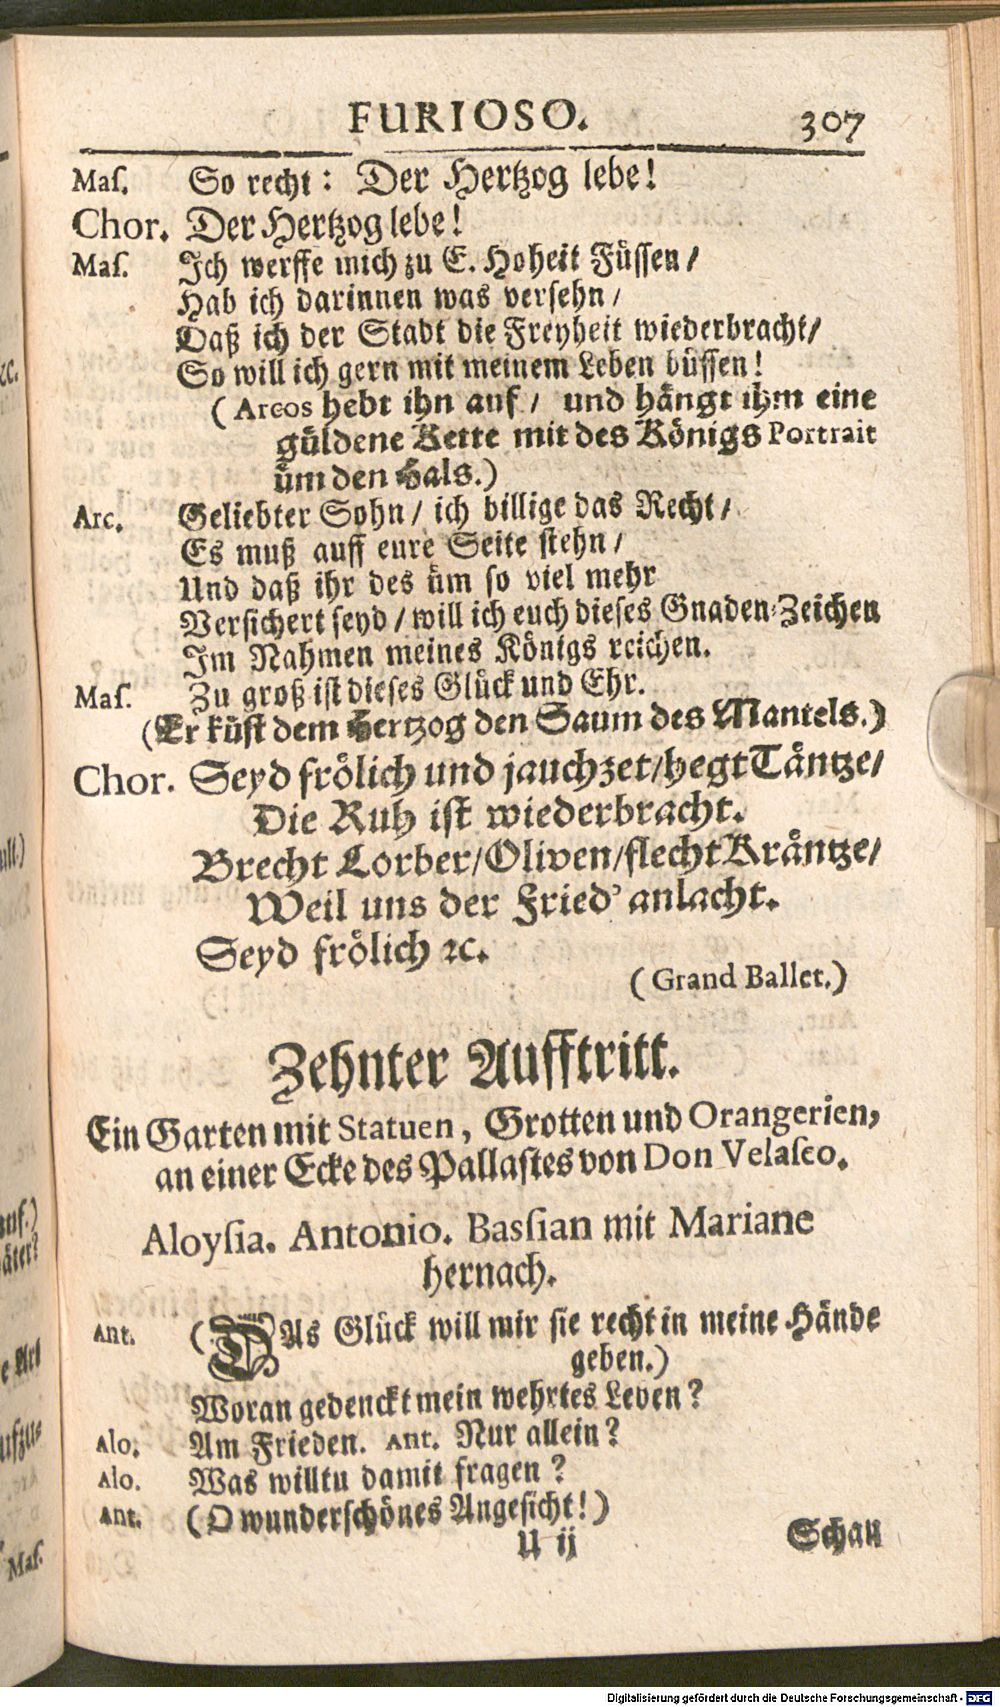 FURIOSO. 307
Maſ. So recht: Der Hertzog lebe!
Chor. Der Hertzog lebe!
Maſ. Ich werffe mich zu E. Hoheit Füſſen/
Hab ich darinnen was verſehn/
Daß ich der Stadt die Freyheit wiederbracht/
So will ich gern mit meinem Leben büſſen!
(Arcos hebt ihn auf/ und hängt ihm eine
güldene Kette mit des Königs Portrait
üm den Hals.)
Arc. Geliebter Sohn/ ich billige das Recht/
Es muß auff eure Seite ſtehn/
Und daß ihr des üm ſo viel mehr
Verſichert ſeyd/ will ich euch dieſes Gnaden-Zeichen
Im Nahmen meines Königs reichen.
Maſ. Zu groß iſt dieſes Glück und Ehr.
(Er küſt dem Hertzog den Saum des Mantels.)
Chor. Seyd frölich und jauchzet/hegt Täntze/
Die Ruh iſt wiederbracht.
Brecht Lorber/Oliven/flecht Kräntze/
Weil uns der Fried' anlacht.
Seyd frölich ꝛc.
(Grand Ballet.)
Zehnter Aufftritt.
Ein Garten mit Statuen, Grotten und Orangerien,
an einer Ecke des Pallaſtes von Don Velaſco.
Aloyſia. Antonio. Baſſian mit Mariane
hernach.
Ant. (DAs Glück will mir ſie recht in meine Hände
geben.)
Woran gedenckt mein wehrtes Leben?
Alo. Am Frieden. Ant. Nur allein?
Alo. Was willtu damit fragen?
Ant. (O wunderſchönes Angeſicht!)
U ij Schau
ꝛc.
auf.)
äter?
e Art
Maſ.
Digitalisierung gefördert durch die Deutsche Forschungsgemeinschaft - DFG